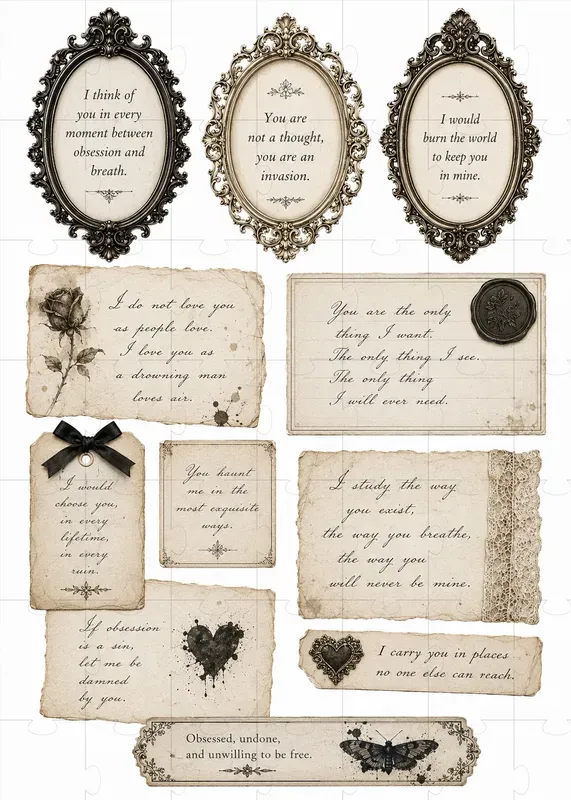 I think of
you in every
moment between
obsession and
breath.
You are
not a thought,
you are an
invasion.
I would
burn the world
to keep you
in mine.
I do not love you
as people love.
I love you as
a drowning man
loves air.
You are the only
thing I want.
The only thing I see.
The only thing
I will ever need.
I would
choose you,
in every
lifetime,
in every
ruin.
You haunt
me in the
most exquisite
ways.
I study the way
you exist,
the way you breathe,
the way you
will never be mine.
If obsession
is a sin,
let me be
damned
by you.
I carry you in places
no one else can reach.
Obsessed, undone,
and unwilling to be free.